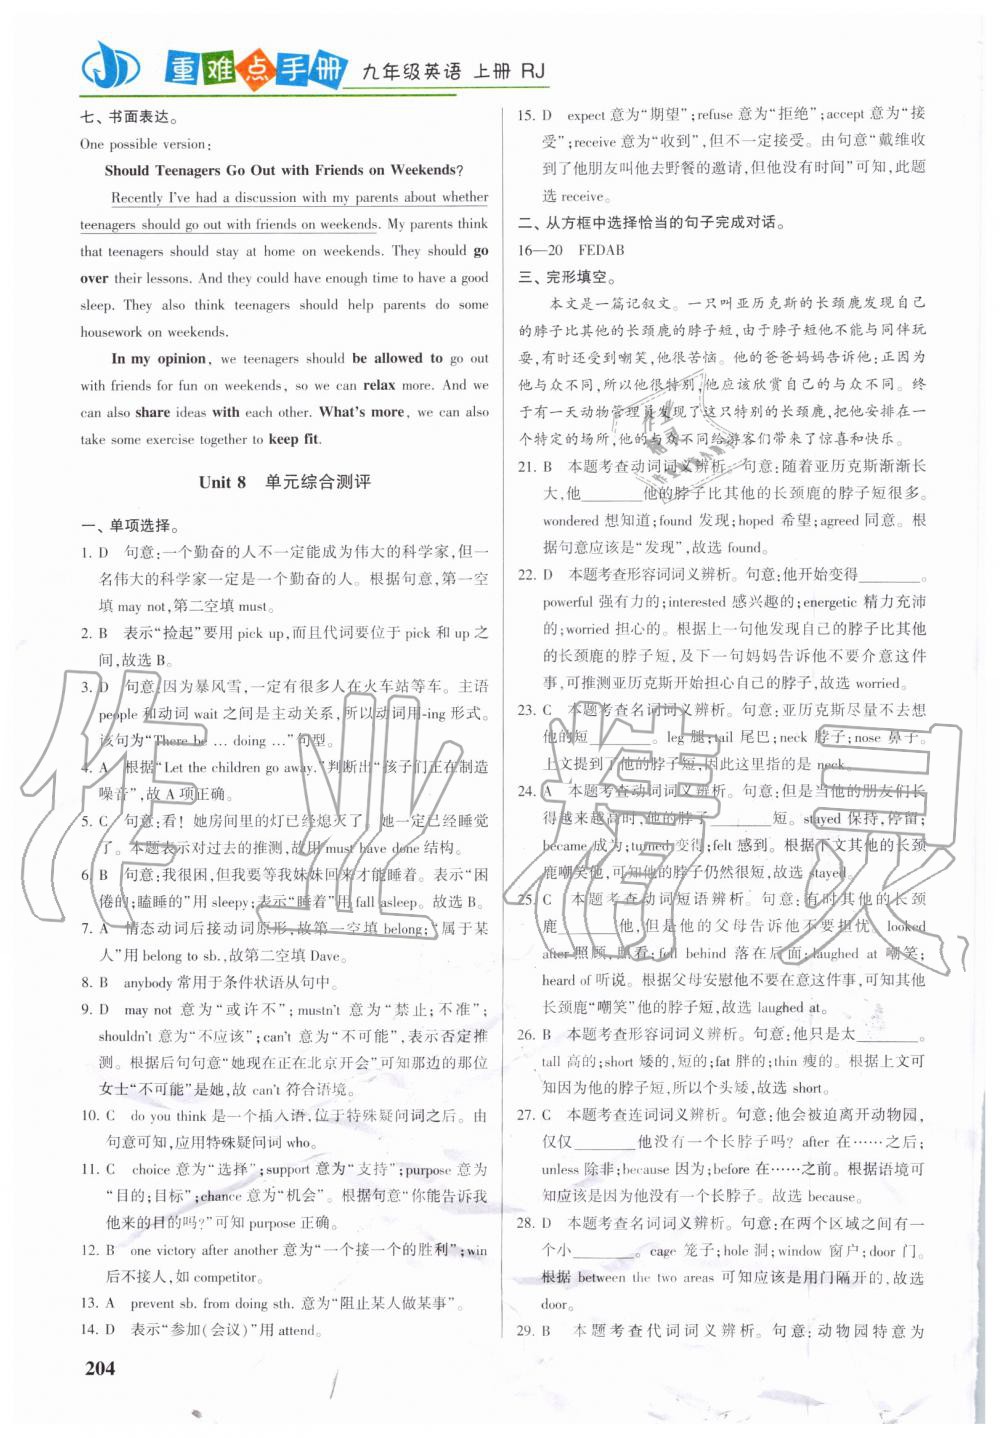 重难点手册 九年级英语 上册 RJ
七、书面表达。
One possible version:
Should Teenagers Go Out with Friends on Weekends?
Recently I've had a discussion with my parents about whether
teenagers should go out with friends on weekends. My parents think
that teenagers should stay at home on weekends. They should go
over their lessons. And they could have enough time to have a good
sleep. They also think teenagers should help parents do some
housework on weekends.
In my opinion, we teenagers should be allowed to go out
with friends for fun on weekends, so we can relax more. And we
can also share ideas with each other. What's more, we can also
take some exercise together to keep fit.
Unit 8 单元综合测评
一、单项选择。
1. D 句意:一个勤奋的人不一定能成为伟大的科学家,但一
名伟大的科学家一定是一个勤奋的人。根据句意,第一空
填 may not,第二空填 must。
2. B 表示“捡起”要用 pick up,而且代词要位于 pick 和 up 之
间,故选 B。
3. D 句意:因为暴风雪,一定有很多人在火车站等车。主语
people 和动词 wait 之间是主动关系,所以动词用-ing 形式。
该句为“There be … doing …”句型。
4. A 根据“Let the children go away.”判断出“孩子们正在制造
噪音”,故 A 项正确。
5. C 句意:看! 她房间里的灯已经熄灭了。她一定已经睡觉
了。本题表示对过去的推测,故用 must have done 结构。
6. B 句意:我很困,但我要等我妹妹回来才能睡着。表示“困
倦的;瞌睡的”用 sleepy;表示“睡着”用 fall asleep。故选 B。
7. A 情态动词后接动词原形,故第一空填 belong;“属于某
人”用 belong to sb.,故第二空填 Dave。
8. B anybody 常用于条件状语从句中。
9. D may not 意为“或许不”;mustn't 意为“禁止;不准”,
shouldn't 意为“不应该”;can't 意为“不可能”,表示否定推
测。根据后句句意“她现在正在北京开会”可知那边的那位
女士“不可能”是她,故 can't 符合语境。
10. C do you think 是一个插入语,位于特殊疑问词之后。由
句意可知,应用特殊疑问词 who。
11. C choice 意为“选择”;support 意为“支持”;purpose 意为
“目的;目标”;chance 意为“机会”。根据句意“你能告诉我
他来的目的吗?”可知 purpose 正确。
12. B one victory after another 意为“一个接一个的胜利”;win
后不接人,如 competitor。
13. A prevent sb. from doing sth. 意为“阻止某人做某事”。
14. D 表示“参加(会议)”用 attend。
204
15. D expect 意为“期望”;refuse 意为“拒绝”;accept 意为“接
受”;receive 意为“收到”,但不一定接受。由句意“戴维收
到了他朋友叫他去野餐的邀请,但他没有时间”可知,此题
选 receive。
二、从方框中选择恰当的句子完成对话。
16—20 FEDAB
三、完形填空。
本文是一篇记叙文。一只叫亚历克斯的长颈鹿发现自己
的脖子比其他的长颈鹿的脖子短,由于脖子短他不能与同伴玩
耍,有时还受到嘲笑,他很苦恼。他的爸爸妈妈告诉他:正因为
他与众不同,所以他很特别,他应该欣赏自己的与众不同。终
于有一天动物管理员发现了这只特别的长颈鹿,把他安排在一
个特定的场所,他的与众不同给游客们带来了惊喜和快乐。
21. B 本题考查动词词义辨析。句意:随着亚历克斯渐渐长
大,他________他的脖子比其他的长颈鹿的脖子短很多。
wondered 想知道;found 发现;hoped 希望;agreed 同意。根
据句意应该是“发现”,故选 found。
22. D 本题考查形容词词义辨析。句意:他开始变得________。
powerful 强有力的;interested 感兴趣的;energetic 精力充沛
的;worried 担心的。根据上一句他发现自己的脖子比其他
的长颈鹿的脖子短,及下一句妈妈告诉他不要介意这件
事,可推测亚历克斯开始担心自己的脖子,故选 worried。
23. C 本题考查名词词义辨析。句意:亚历克斯尽量不去想
他的短________。leg 腿;tail 尾巴;neck 脖子;nose 鼻子。
上文提到了他的脖子短,因此这里指的是 neck。
24. A 本题考查动词词义辨析。句意:但是当他的朋友们长
得越来越高时,他的脖子________短。stayed 保持,停留;
became 成为;turned 变得;felt 感到。根据下文其他的长颈
鹿嘲笑他,可知他的脖子仍然很短,故选 stayed。
25. C 本题考查动词短语词义辨析。句意:有时其他的长颈
鹿________他,但是他的父母告诉他不要担忧。looked
after 照顾,照看;fell behind 落在后面;laughed at 嘲笑;
heard of 听说。根据父母安慰他不要在意这件事,可知其他
长颈鹿“嘲笑”他的脖子短,故选 laughed at。
26. B 本题考查形容词词义辨析。句意:他只是太________。
tall 高的;short 矮的,短的;fat 胖的;thin 瘦的。根据上文可
知因为他的脖子短,所以个头矮,故选 short。
27. C 本题考查连词词义辨析。句意:他会被迫离开动物园,
仅仅________他没有一个长脖子吗? after 在……之后;
unless 除非;because 因为;before 在……之前。根据语境可
知应该是因为他没有一个长脖子。故选 because。
28. D 本题考查名词词义辨析。句意:在两个区域之间有一
个小________。cage 笼子;hole 洞;window 窗户;door 门。
根据 between the two areas 可知应该是用门隔开的,故选
door。
29. B 本题考查代词词义辨析。句意:动物园特意为
作业精灵